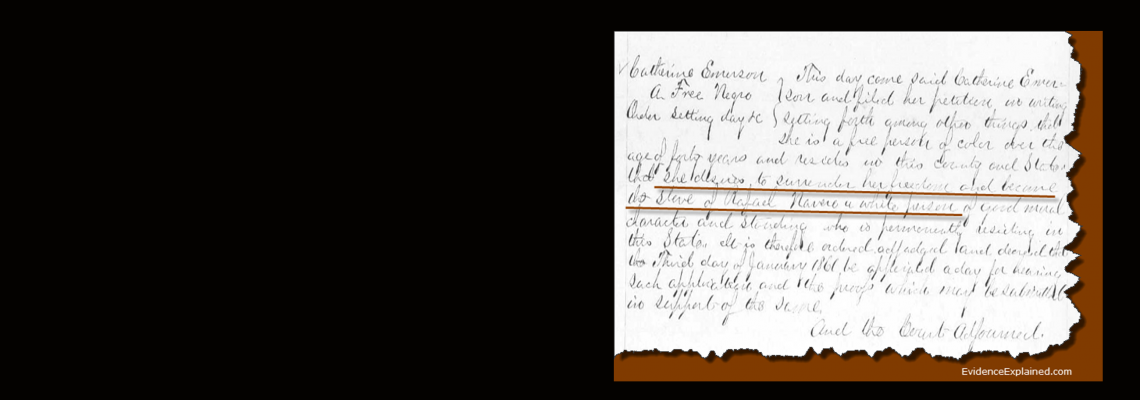 Catherine Emerson
A Free Negro
Order setting day &c
This day came said Catherine Emer-
son and filed her petition in writing
setting forth among other things that
she is a free person of color over the
age of forty years and resides in this County and State
that she desires to surrender her freedom and become
the slave of Rafael Navaro a white person of good moral
character and standing who is permanently residing in
this State. It is therefore ordered adjudged and decreed that
the Third day of January 1861 be appointed a day for hearing
such application and the proofs which may be submitted
in support of the same.
And the Court adjourned.
EvidenceExplained.com